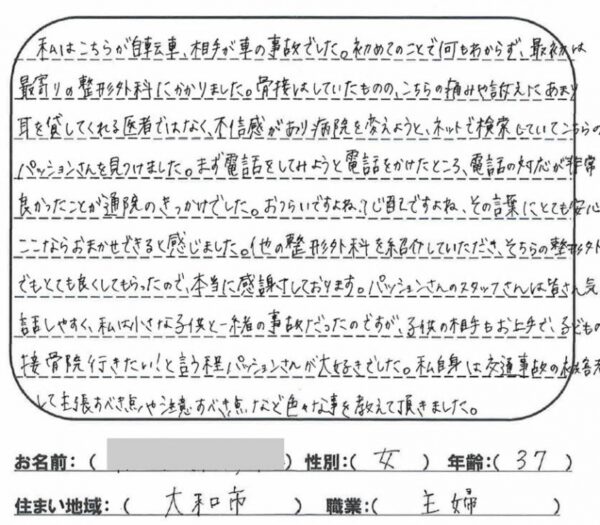 私はこちらが自転車、相手が車の事故でした。初めてのことで何もわからず、最初は
最寄りの整形外科にかかりました。骨接はしていたものの、こちらの痛みや訴えにあまり
耳を貸してくれる医者ではなく、不信感があり病院を変えようと、ネットで検索していてこちらの
パッションさんを見つけました。まず電話をしてみようと電話をかけたところ、電話の対応が非常
良かったことが通院のきっかけでした。おつらいですよね？心配ですよね、その言葉にとても安心
ここならおまかせできると感じました。他の整形外科を紹介していただき、そちらの整形外
でもとても良くしてもらったので、本当に感謝しております。パッションさんのスタッフさんは皆さん気
話しやすく、私は小さな子供と一緒の事故だったのですが、子供の相手もお上手で、子どもの
接骨院行きたい！と言う程パッションさんが大好きでした。私自身は交通事故の被害者
して主張すべき点や注意すべき点など色々な事を教えて頂きました。
お名前：（ ）性別：（女）年齢：（37）
住まい地域：（大和市）職業：（主婦）